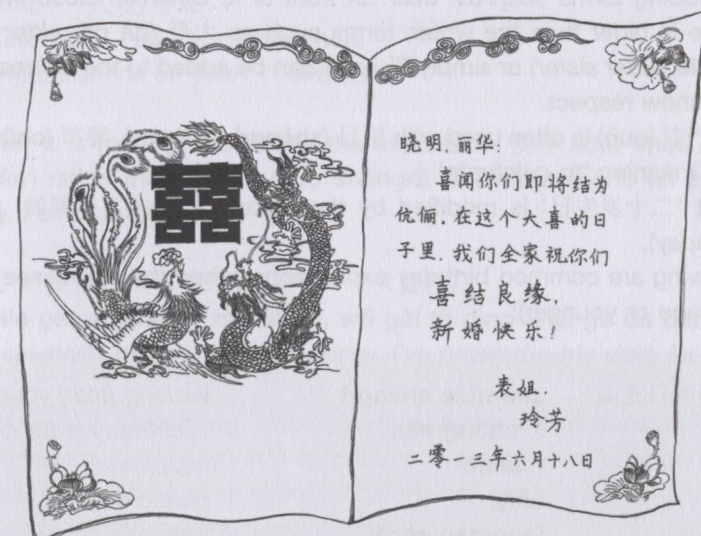 囍
晓明、丽华:
喜闻你们即将结为
伉俪,在这个大喜的日
子里,我们全家祝你们
喜结良缘,
新婚快乐!
表姐
玲芳
二零一三年六月十八日